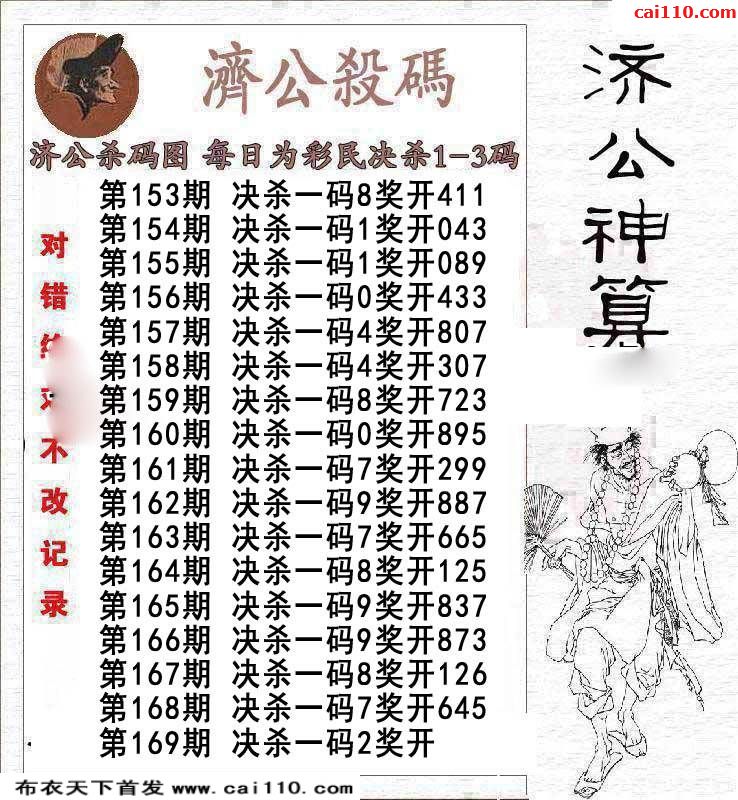 cai110.com
濟公殺碼
济公杀码图 每日为彩民决杀1-3码
第153期 决杀一码8奖开411
第154期 决杀一码1奖开043
第155期 决杀一码1奖开089
第156期 决杀一码0奖开433
第157期 决杀一码4奖开807
第158期 决杀一码4奖开307
第159期 决杀一码8奖开723
第160期 决杀一码0奖开895
第161期 决杀一码7奖开299
第162期 决杀一码9奖开887
第163期 决杀一码7奖开665
第164期 决杀一码8奖开125
第165期 决杀一码9奖开837
第166期 决杀一码9奖开873
第167期 决杀一码8奖开126
第168期 决杀一码7奖开645
第169期 决杀一码2奖开
对错不改记录
济公神算
布衣天下首发 www.cai110.com